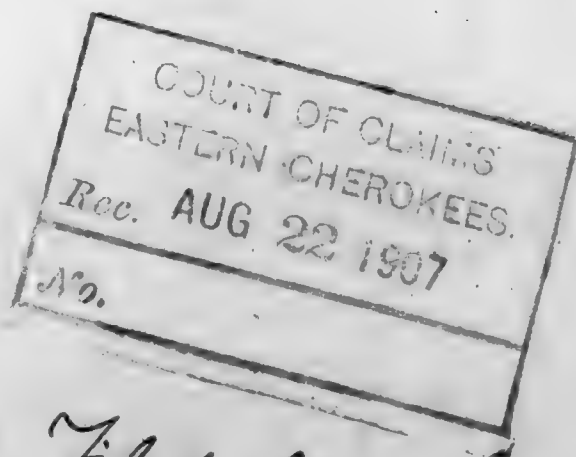 COURT OF CLAIMS
EASTERN CHEROKEES.
Rec. AUG 22 1907
No.